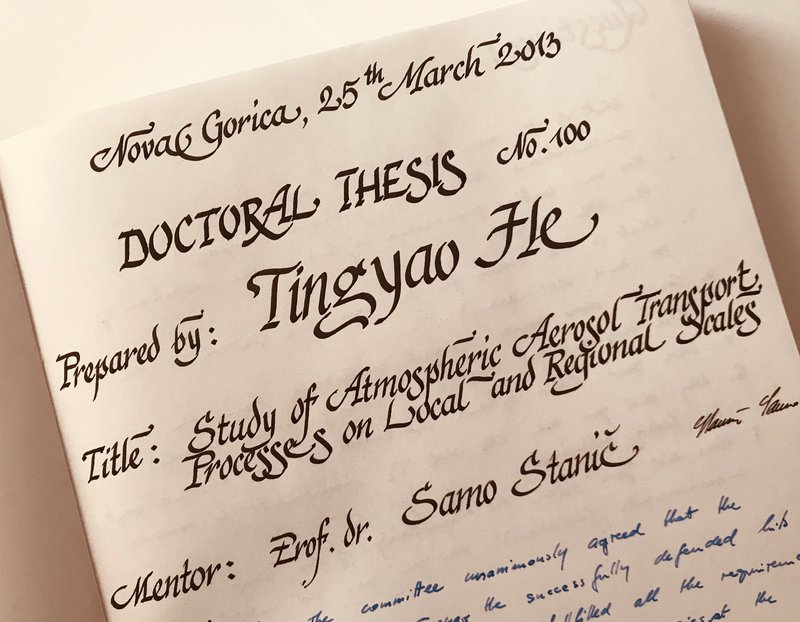 Nova Gorica, 25th March 2013
DOCTORAL THESIS No. 100
Prepared by: Tingyao He
Title: Study of Atmospheric Aerosol Transport
Processes on Local and Regional Scales
Mentor: Prof. dr. Samo Stanič
The committee unanimously agreed that the
the successfully defended his
all the
the